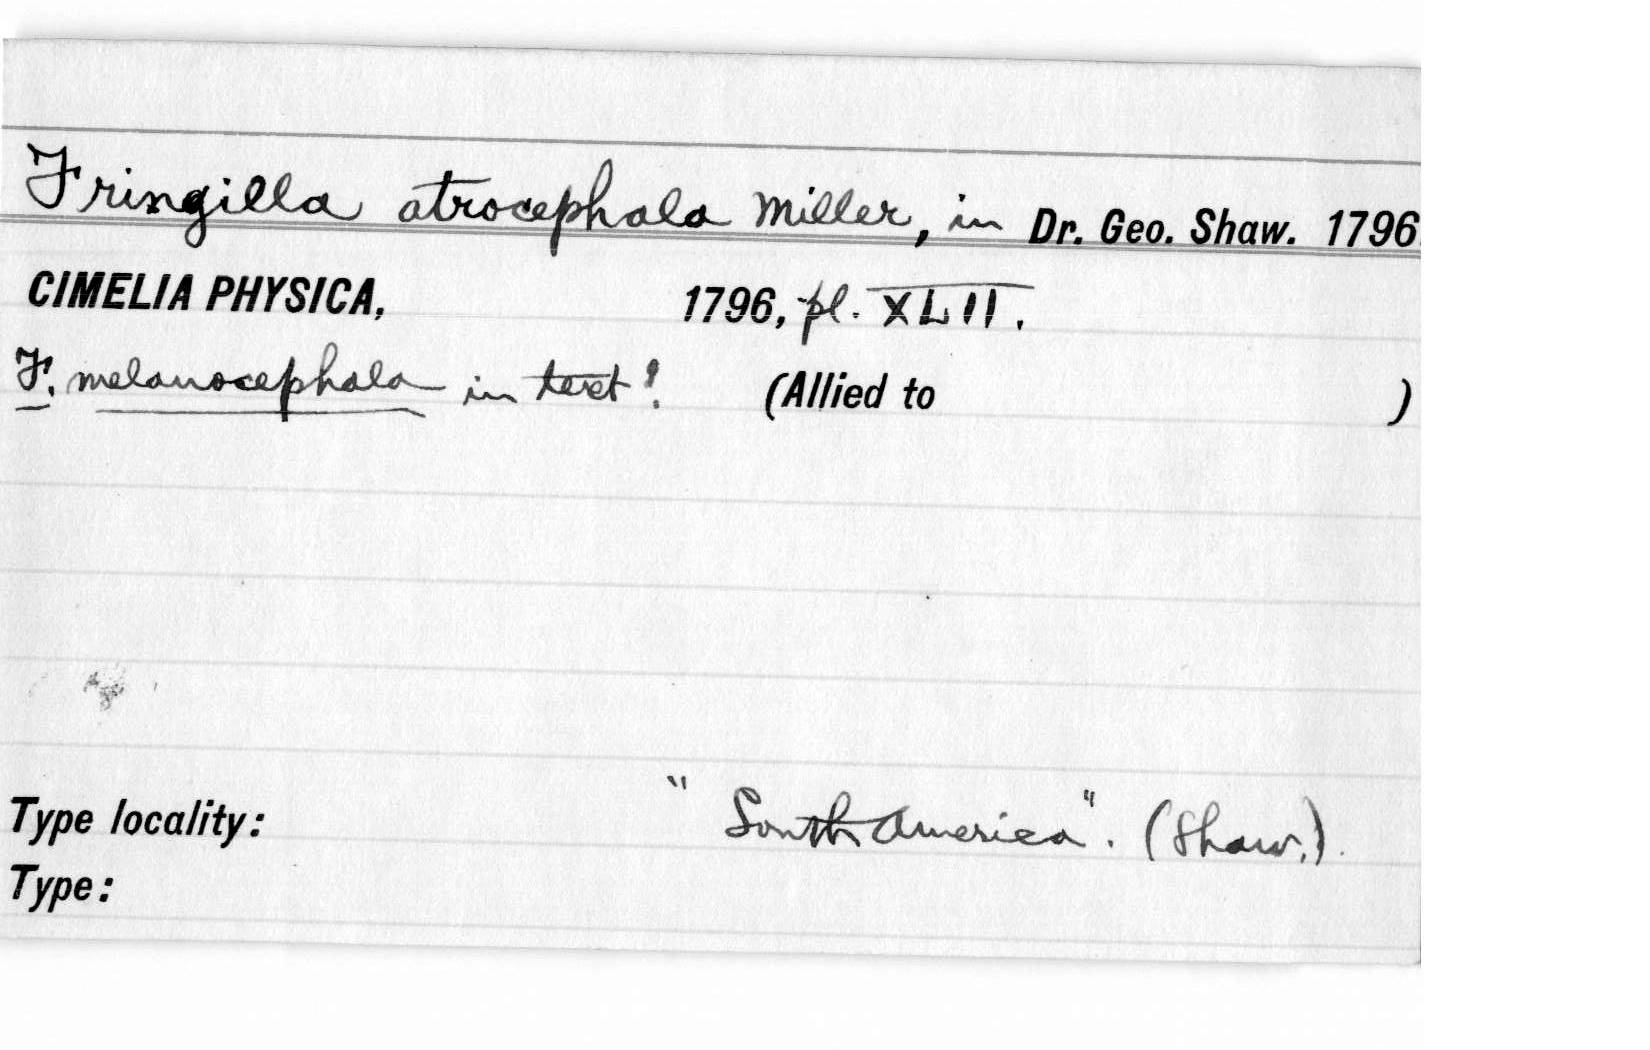 Fringilla atrocephala Miller, in Dr. Geo. Shaw. 1796
CIMELIA PHYSICA, 1796, pl. XLII.
F. melanocephala in text! (Allied to )
Type locality: "South America". (Shaw.).
Type: